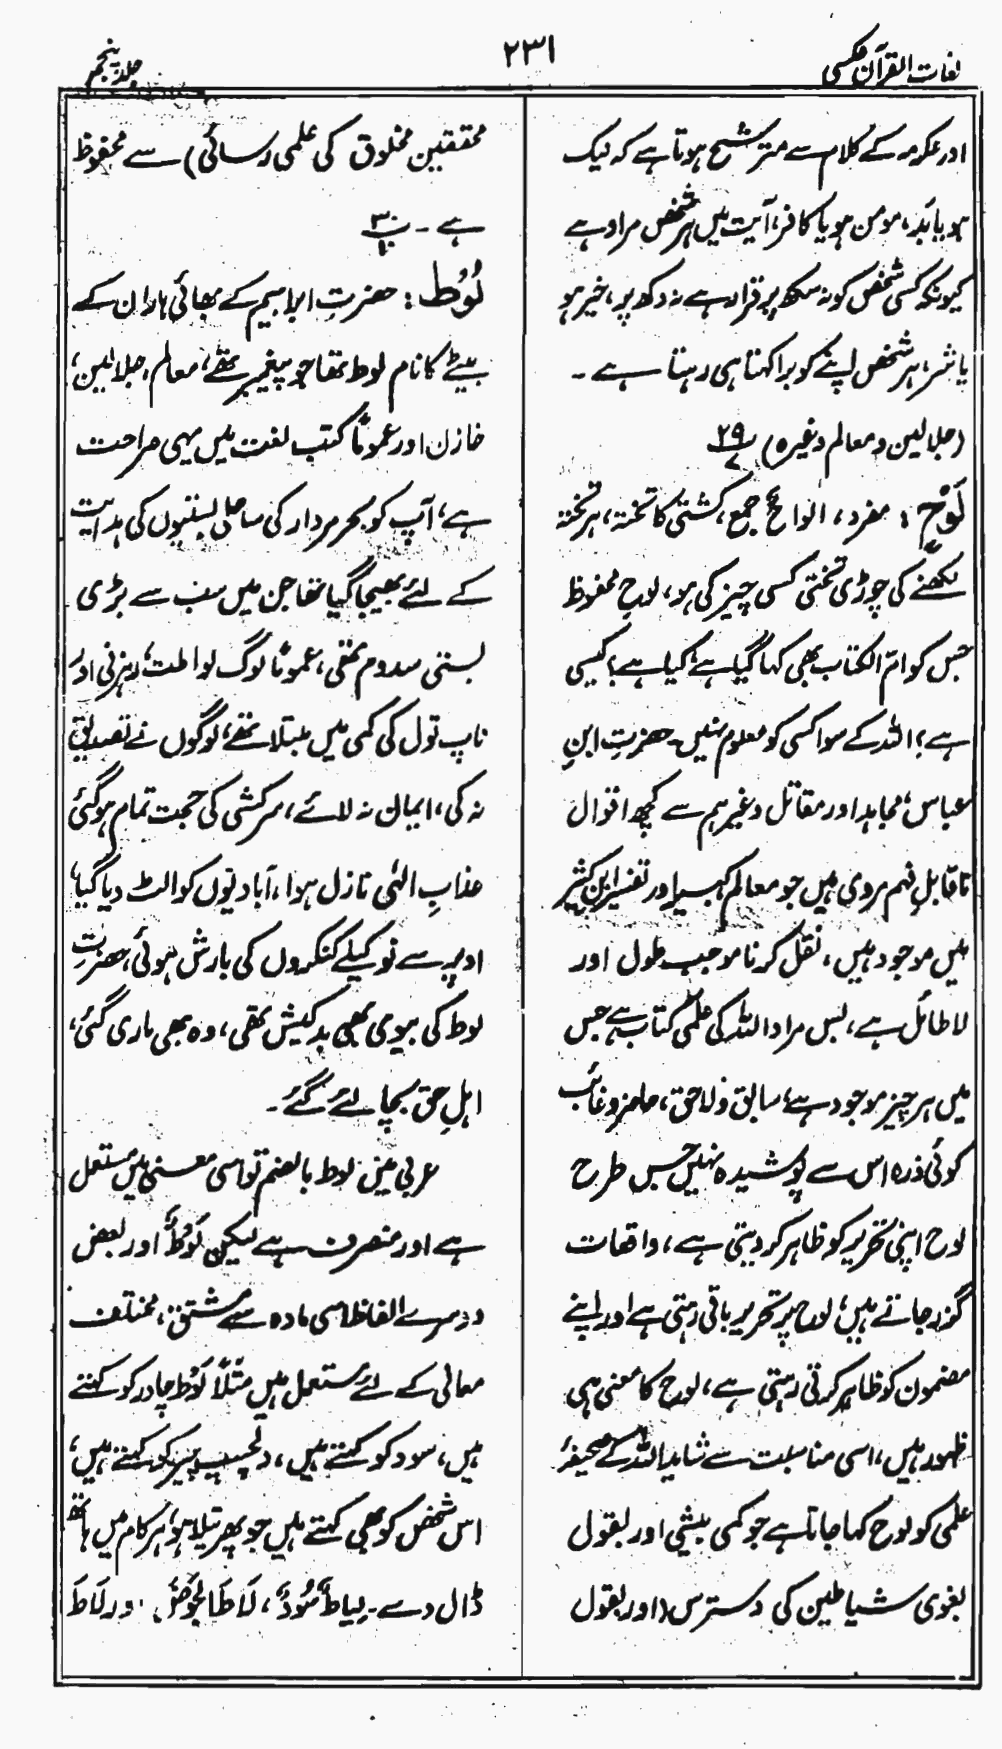 لغات القرآن عکسی
۲۳۱
جلد پنجم
اور عکرمہ کے کلام سے مترشح ہوتا ہے کہ نیک
ہو یا بد، مومن ہو یا کافر، آیت میں ہر شخص مراد ہے
کیونکہ کسی شخص کو نہ سکھ پر قرار ہے نہ دکھ پر، خیر ہو
یا شر، ہر شخص اپنے کو برا کہتا ہی رہتا ہے۔
(جلالین و معالم وغیرہ) ۲۹
لَوْحٍ: مفرد، الواحٌ جمع، کشتی کا تختہ، ہر تختہ
لکھنے کی چوڑی تختی کسی چیز کی ہو، لوحِ محفوظ
جس کو امّ الکتاب بھی کہا گیا ہے، کیا ہے؟ کیسی
ہے؟ اللہ کے سوا کسی کو معلوم نہیں۔ حضرت ابنِ
عباس، مجاہد اور مقاتل وغیرہم سے کچھ اقوال
ناقابلِ فہم مروی ہیں جو معالم کبیر اور تفسیر ابن کثیر
میں موجود ہیں، نقل کرنا موجب طول اور
لاطائل ہے، بس مراد اللہ کی علمی کتاب ہے جس
میں ہر چیز موجود ہے، سابق و لاحق، حاضر و غائب
کوئی ذرہ اس سے پوشیدہ نہیں جس طرح
لوح اپنی تحریر کو ظاہر کر دیتی ہے، واقعات
گزر جاتے ہیں، لوح پر تحریر باقی رہتی ہے اور اپنے
مضمون کو ظاہر کرتی رہتی ہے، لوح کا معنی ہی
ظہور ہیں، اسی مناسبت سے شاید اللہ کے صحیفۂ
علمی کو لوح کہا جاتا ہے جو کمی بیشی اور بقول
بغوی شیاطین کی دسترس (اور بقول
محققین مخلوق کی علمی رسائی) سے محفوظ
ہے۔ ۳۰
لُوْط: حضرت ابراہیم کے بھائی ہاران کے
بیٹے کا نام لوط تھا جو پیغمبر تھے، معالم، جلالین،
خازن اور عموماً کتب لغت میں یہی صراحت
ہے، آپ کو بحر مردار کی ساحلی بستیوں کی ہدایت
کے لئے بھیجا گیا تھا جن میں سب سے بڑی
بستی سدوم تھی، عموماً لوگ لواطت، رہزنی اور
ناپ تول کی کمی میں مبتلا تھے، لوگوں نے تصدیق
نہ کی، ایمان نہ لائے، سرکشی کی حجت تمام ہوگئی
عذابِ الٰہی نازل ہوا، آبادیوں کو الٹ دیا گیا،
اوپر سے نوکیلے کنکروں کی بارش ہوئی، حضرت
لوط کی بیوی بھی بدکیش تھی، وہ بھی ماری گئی،
اہلِ حق بچا لئے گئے۔
عربی میں لوط بالضم تو اسی معنی میں مستعمل
ہے اور منصرف ہے لیکن لَوْطٌ اور بعض
دوسرے الفاظ اسی مادہ سے مشتق، مختلف
معانی کے لئے مستعمل ہیں مثلاً لَوْط چادر کو کہتے
ہیں، سود کو کہتے ہیں، دلچسپ چیز کو کہتے ہیں،
اس شخص کو بھی کہتے ہیں جو پھرتیلا ہو، ہر کام میں ہاتھ
ڈال دے۔ لِیاطٌ سُوْدٌ، لَاطَ الْحَوْضَ، اور لَاطَ